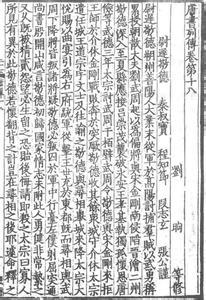 唐書列傳卷第十八
劉昫 等修
尉遲敬德 秦叔寶 程知節 段志玄 張公謹
尉遲敬德朔州善陽人大業末從軍於高陽討捕羣賊以武勇稱
累授朝散大夫劉武周起以為偏將與宋金剛南侵陷晉澮二州
敬德深入至夏縣應接呂崇茂襲破永安王孝基執獨孤懷恩唐儉
等武德三年太宗討武周於柏壁武周令敬德與宋金剛來拒
王師於介休金剛戰敗奔於突厥敬德收其餘眾城守介休太宗
遣任城王道宗宇文士及往諭之敬德與尋相舉城來降太宗大
悅賜以曲宴引為右一府統軍從擊王世充於東都既而尋相與武
周下降將皆叛諸將疑敬德必叛囚於軍中行臺左僕射屈突通
尚書殷開山咸言敬德初歸國家情志未附此人勇健非常縶之
又久既被猜貳怨望必生留之恐貽後悔請即殺之太宗曰寡人
所見有異於此敬德若懷翻背之計豈在尋相之後耶遽命釋之